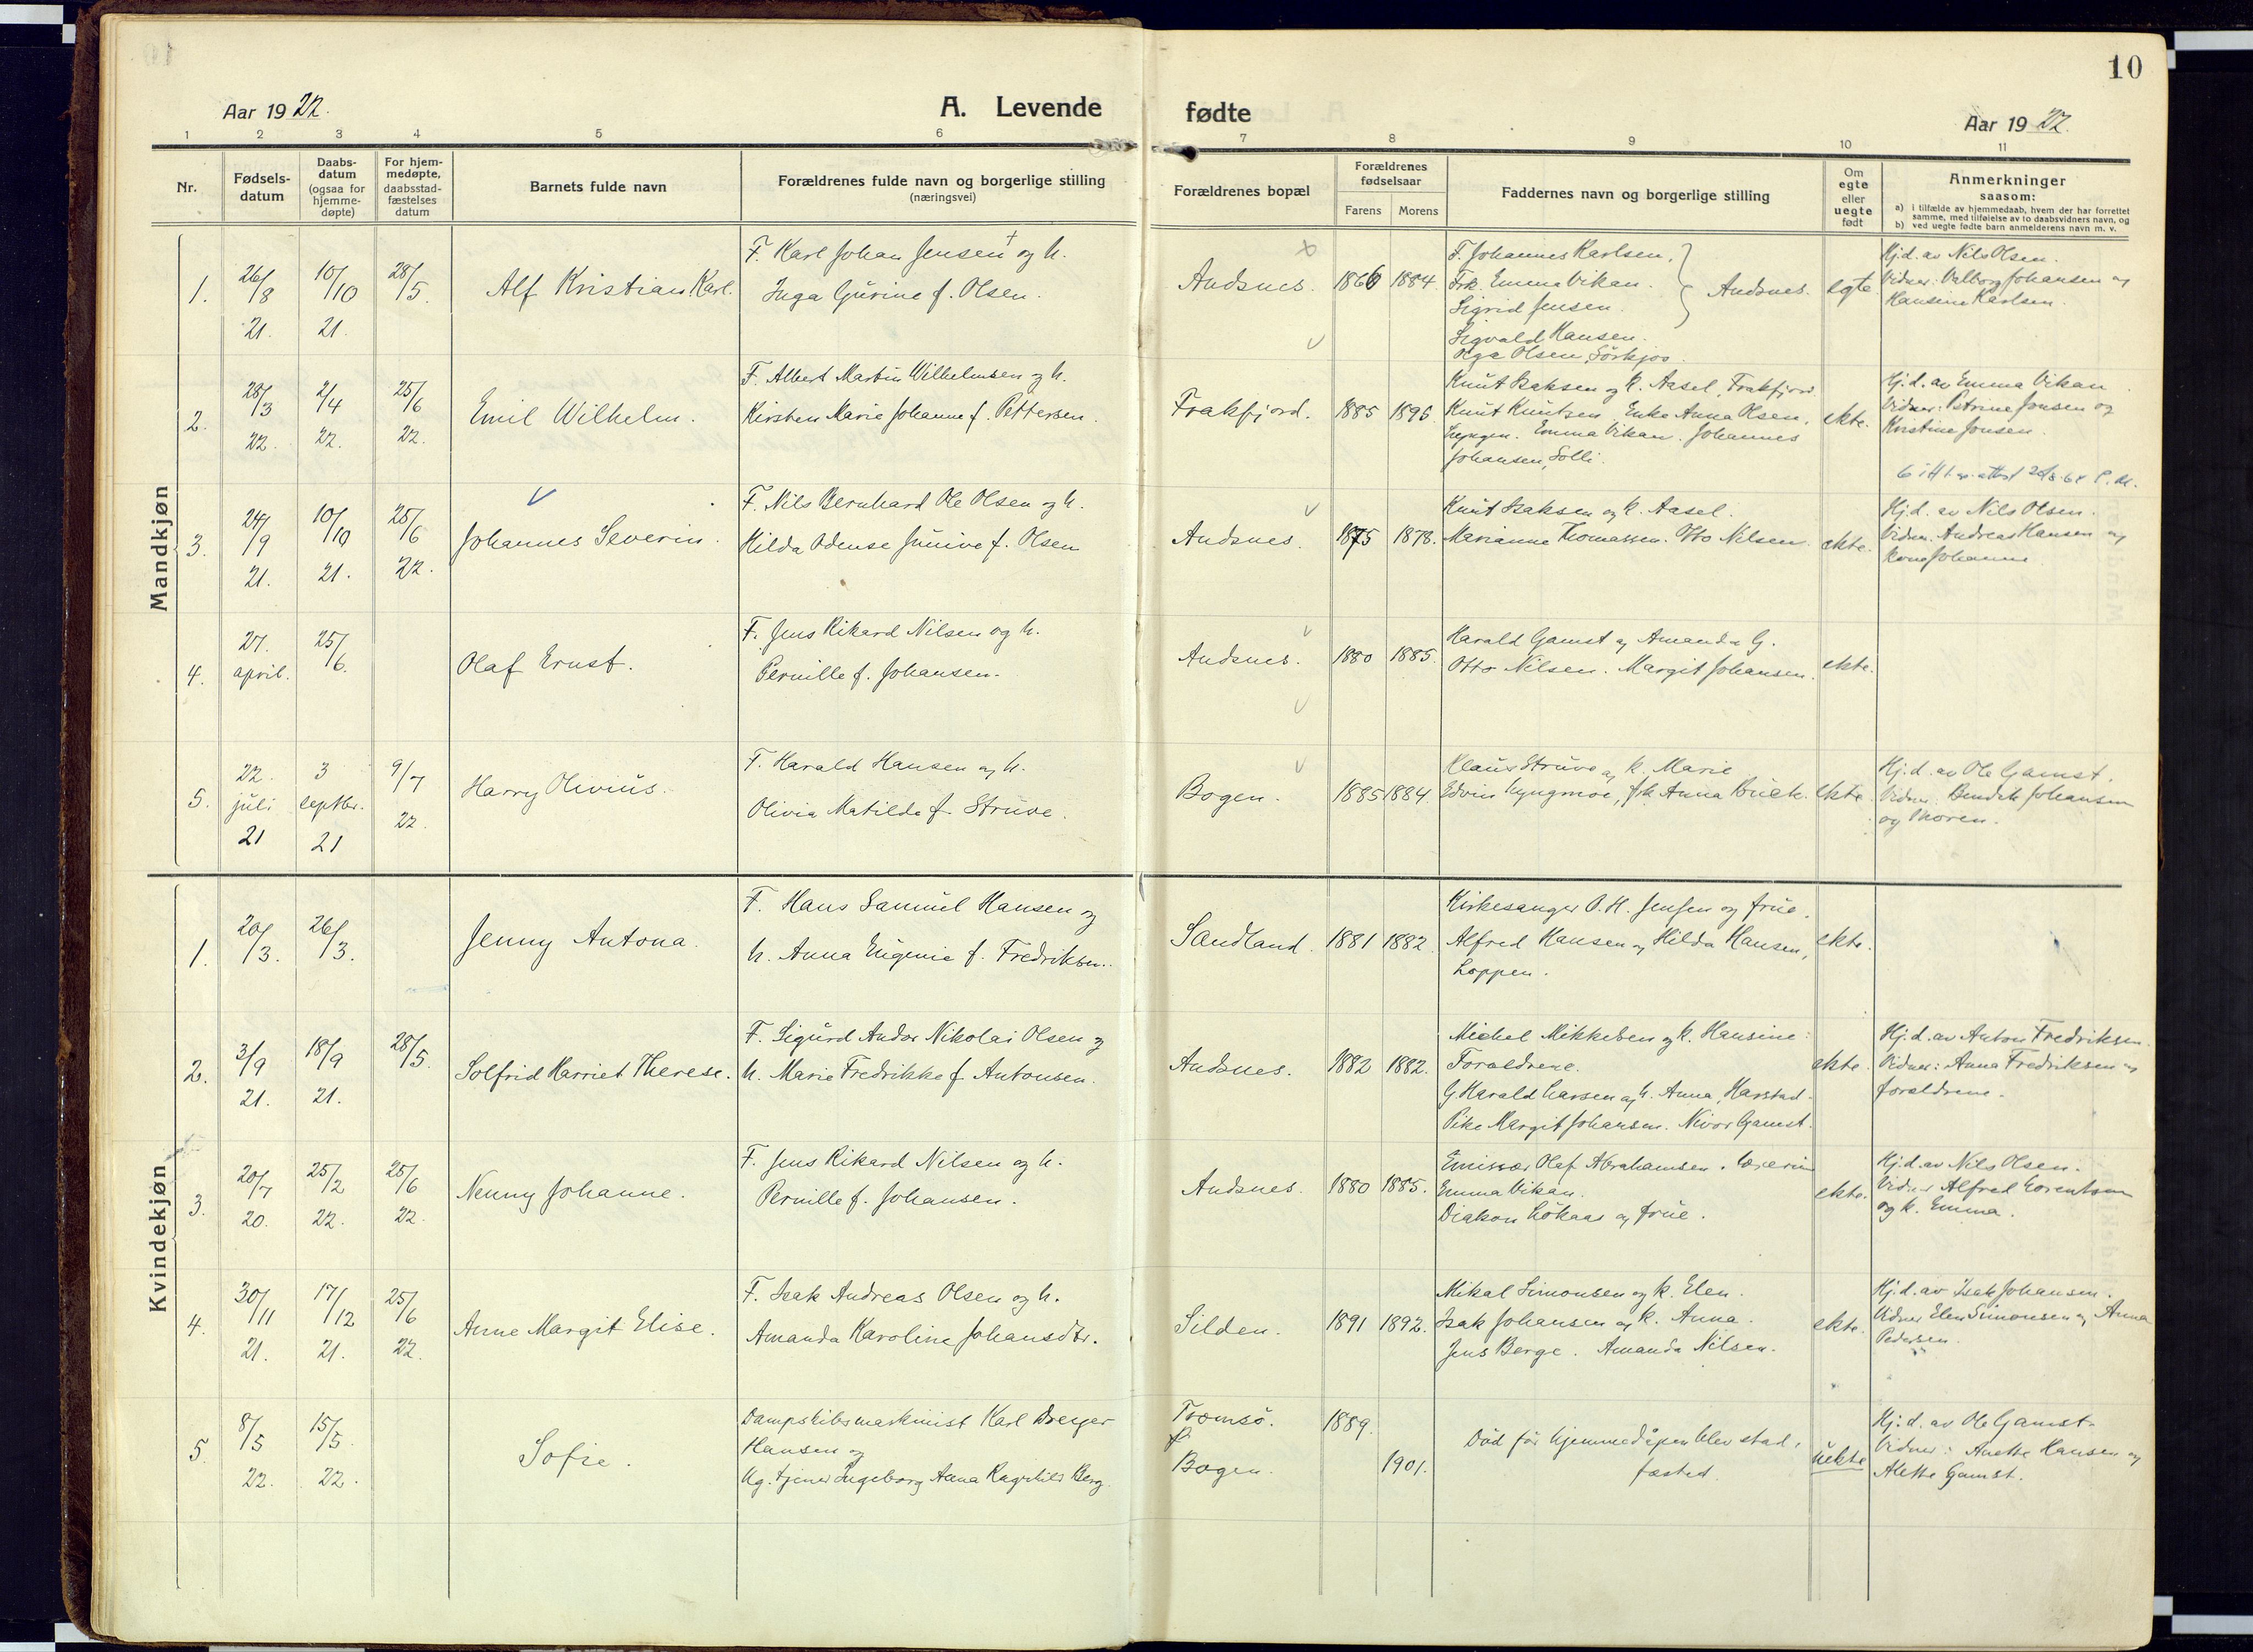 10
Aar 1922.
A. Levende fødte
Aar 1922.
1 2 3 4 5 6 7 8 9 10 11
Nr.
Fødsels-
datum
Daabs-
datum
(ogsaa for
hjemme-
døpte)
For hjem-
medøpte,
daabsstad-
fæstelses
datum
Barnets fulde navn
Forældrenes fulde navn og borgerlige stilling
(næringsvei)
Forældrenes bopæl
Forældrenes
fødselsaar
Farens Morens
Faddernes navn og borgerlige stilling
Om
egte
eller
uegte
født
Anmerkninger
saasom:
a) i tilfælde av hjemmedaab, hvem der har forrettet
samme, med tilføielse av to daabsvidners navn, og
b) ved uegte fødte barn anmelderens navn m. v.
Mandkjøn
1.
26/8
21.
10/10
21.
28/5.
Alf Kristian Karl.
F. Karl Johan Jensen † og h.
Inga Gurine f. Olsen.
Andsnes.
1866 1884.
F. Johannes Karlsen,
Frk. Emma Vikan.
Sigrid Jensen.
Andsnes.
Sigvald Hansen.
Olga Olsen, Sörkjos.
egte
Hj.d. av Nils Olsen.
Vidner: Valborg Johansen og
Hansine Karlsen.
2.
28/3
22.
2/4
22.
25/6
22.
Emil Wilhelm.
F. Albert Martin Wilhelmsen og h.
Kirsten Marie Johanne f. Pettersen.
Frakfjord.
1885 1896
Knut Isaksen og k. Aasel, Frakfjord
Knut Knutsen, Enke Anna Olsen,
Lyngen. Emma Vikan. Johannes
Johansen, Solli.
ekte.
Hj.d. av Emma Vikan
Vidner: Petrine Jonsen og
Kristine Jonsen.
3.
24/9
21.
10/10
21.
25/6
22.
Johannes Severin.
F. Nils Bernhard Ole Olsen og h.
Hilda Odense Junive f. Olsen
Andsnes.
1875 1878.
Knut Isaksen og k. Aasel.
Marianne Thomassen. Otto Nilsen.
ekte.
Hj.d. av Nils Olsen.
Vidner. Andreas Hansen og
Kone Johanne
4.
27.
april.
25/6.
Olaf Ernst.
F. Jens Rikard Nilsen og h.
Pernille f. Johansen.
Andsnes.
1880 1885.
Harald Gamst og Amanda G.
Otto Nilsen. Margit Johansen.
ekte.
5.
22.
juli
21
3
septbr.
21
9/7
22.
Harry Olivius.
F. Harald Hansen og h.
Olivia Matilde f. Struve.
Bogen.
1885 1884.
Klaus Struve og k. Marie
Edvin Lyngmoe, frk Anna Buck.
ekte
Hj.d. av Ole Gamst.
Vidner. Bendik Johansen
og Thoren.
Kvindekjøn
1.
20/3.
26/3.
Jenny Antona.
F. Hans Samuel Hansen og
h. Anna Eugenie f. Fredriksen.
Sandland.
1881 1882.
Kirkesanger O. H. Jensen og frue.
Alfred Hansen og Hilda Hansen,
Loppen.
ekte.
2.
3/9
21.
18/9
21.
28/5.
Solfrid Harriet Therese.
F. Sigurd Andor Nikolai Olsen og
h. Marie Fredrikke f. Antonsen.
Andsnes.
1882 1882.
Michel Mikkelsen og k. Hansine.
Foreldrene.
G Harald Larsen og h. Anna, Harstad.
Pike Margit Johansen. Nivor Gamst.
ekte.
Hj.d. av Anton Fredriksen.
Vidner: Anna Fredriksen og
foreldrene.
3.
20/7
20.
25/2
22.
25/6
22.
Nenny Johanne.
F. Jens Rikard Nilsen og h.
Pernille f. Johansen.
Andsnes.
1880 1885.
Emissær Olaf Abrahamsen.
Emma Vikan.
Diakon Lökaas og frue.
ekte.
Hj.d. av Nils Olsen.
Vidner Alfred Lorentsen
og k. Emma.
4.
30/11
21.
17/12
21.
25/6
22.
Anne Margit Elise.
F. Isak Andreas Olsen og h.
Amanda Karoline Johansdtr.
Silden.
1891 1892.
Mikal Simonsen og k. Elen.
Isak Johansen og k. Anna.
Jens Berge. Amanda Nilsen.
ekte.
Hj.d. av Isak Johansen.
Vidner Elen Simonsen og Anna
Pedersen.
5.
8/5
22.
15/5.
22.
Sofie.
Dampskibsmaskinist Karl Dreyer
Hansen og
Ug. tjener Ingeborg Anna Ragnhild Berg.
Tromsö.
Bogen.
1889.
1901.
Död før hjemmedåpen blev stad-
fested.
uekte
Hj.d. av Ole Gamst.
Vidner: Anette Hansen og
Alette Gamst.